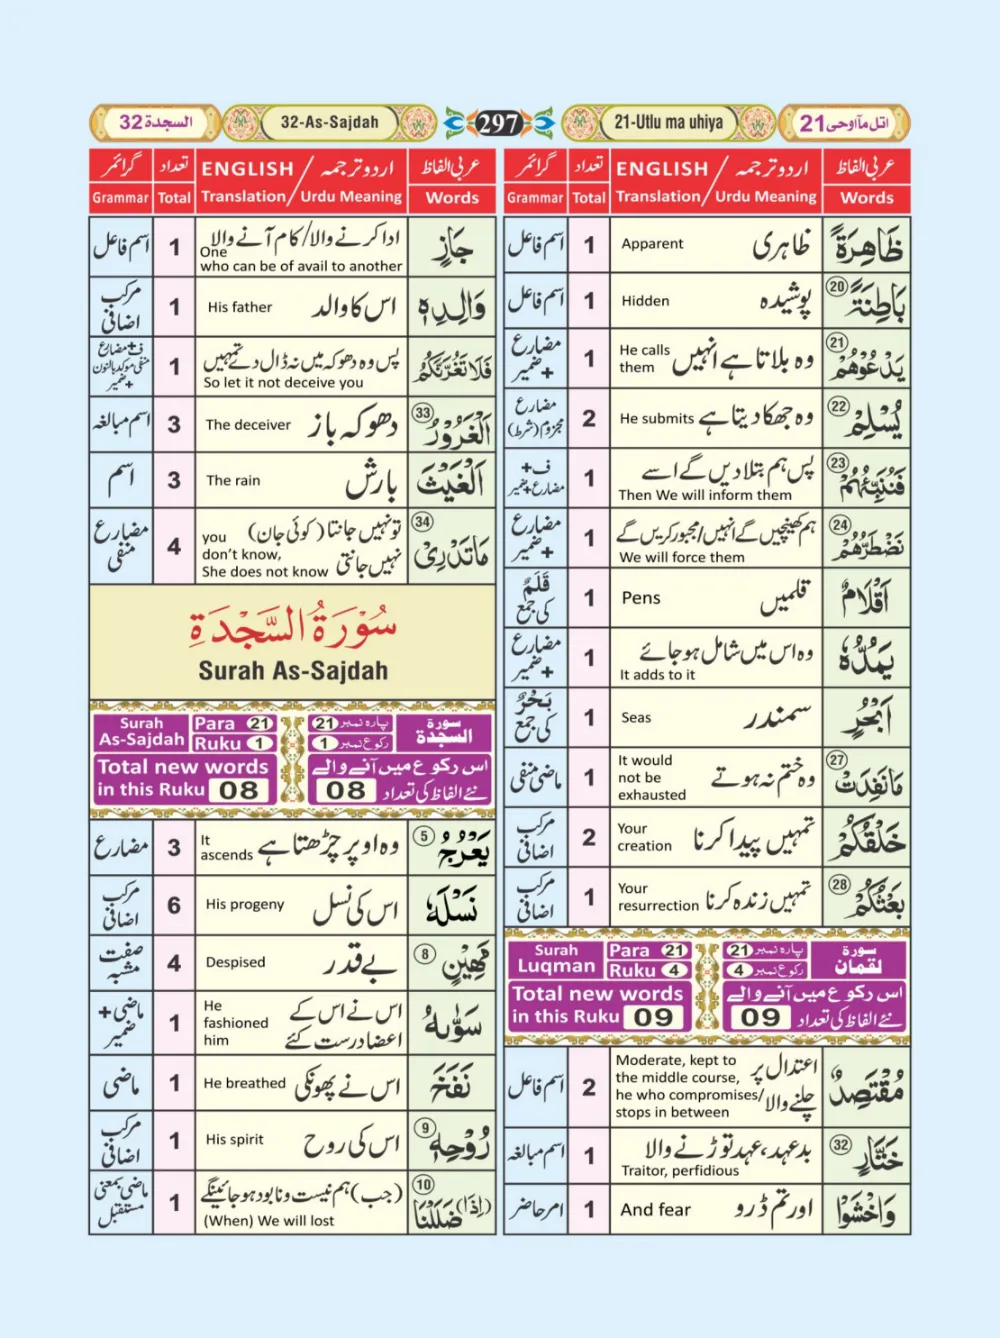 السجدة 32
32-As-Sajdah
297
21-Utlu ma uhiya
اتل ما اوحی 21
عربی الفاظ
اردو ترجمہ / ENGLISH
تعداد
گرائمر
Words
Translation / Urdu Meaning
Total
Grammar
ظَاهِرَةً
ظاہری
Apparent
1
اسم فاعل
بَاطِنَةً ۲۰
پوشیدہ
Hidden
1
اسم فاعل
يَدْعُوهُمْ ۲۱
وہ بلاتا ہے انہیں
He calls
them
1
مضارع
+ ضمیر
يُسْلِمْ ۲۲
وہ جھکا دیتا ہے
He submits
2
مضارع
مجزوم (شرط)
فَنُنَبِّئُهُمْ ۲۳
پس ہم بتلا دیں گے اسے
Then We will inform them
1
ف +
مضارع + ضمیر
نَضْطَرُّهُمْ ۲۴
ہم کھینچیں گے انہیں/مجبور کریں گے
We will force them
1
مضارع
+ ضمیر
اَقْلَامٌ
قلمیں
Pens
1
قَلَمٌ
کی جمع
يَمُدُّهٗ
وہ اس میں شامل ہو جائے
It adds to it
1
مضارع
+ ضمیر
اَبْحُرٍ
سمندر
Seas
1
بَحْرٌ
کی جمع
مَا نَفِدَتْ ۲۷
وہ ختم نہ ہوتے
It would
not be
exhausted
1
ماضی منفی
خَلْقُكُمْ
تمہیں پیدا کرنا
Your
creation
2
مرکب
اضافی
بَعْثُكُمْ ۲۸
تمہیں زندہ کرنا
Your
resurrection
1
مرکب
اضافی
Surah
Luqman
Para 21
Ruku 4
پارہ نمبر 21
رکوع نمبر 4
سورة
لقمان
Total new words
in this Ruku 09
اس رکوع میں آنے والے
نئے الفاظ کی تعداد 09
مُقْتَصِدٌ
اعتدال پر
چلنے والا
Moderate, kept to
the middle course,
he who compromises/
stops in between
2
اسم فاعل
خَتَّارٍ ۳۲
بد عہد، عہد توڑنے والا
Traitor, perfidious
1
اسم مبالغہ
وَاخْشَوْا
اور تم ڈرو
And fear
1
امر حاضر
عربی الفاظ
اردو ترجمہ / ENGLISH
تعداد
گرائمر
Words
Translation / Urdu Meaning
Total
Grammar
جَازٍ
ادا کرنے والا/کام آنے والا
One
who can be of avail to another
1
اسم فاعل
وَالِدِهٖ
اس کا والد
His father
1
مرکب
اضافی
فَلَا تَغُرَّنَّكُمْ
پس وہ دھوکہ میں نہ ڈال دے تمہیں
So let it not deceive you
1
ف + مضارع
منفی موکد بالنون
+ ضمیر
الْغَرُوْرُ ۳۳
دھوکہ باز
The deceiver
3
اسم مبالغہ
الْغَيْثَ
بارش
The rain
3
اسم
مَا تَدْرِيْ ۳۴
تو نہیں جانتا (کوئی جان)
نہیں جانتی
you
don't know,
She does not know
4
مضارع
منفی
سُوْرَةُ السَّجْدَةِ
Surah As-Sajdah
Surah
As-Sajdah
Para 21
Ruku 1
پارہ نمبر 21
رکوع نمبر 1
سورة
السجدة
Total new words
in this Ruku 08
اس رکوع میں آنے والے
نئے الفاظ کی تعداد 08
يَعْرُجُ ۵
وہ اوپر چڑھتا ہے
It
ascends
3
مضارع
نَسْلَهٗ
اس کی نسل
His progeny
6
مرکب
اضافی
مَّهِيْنٍ ۸
بے قدر
Despised
4
صفت
مشبہ
سَوّٰىهُ
اس نے اس کے
اعضا درست کئے
He
fashioned
him
1
ماضی +
ضمیر
نَفَخَ
اس نے پھونکی
He breathed
1
ماضی
رُّوْحِهٖ ۹
اس کی روح
His spirit
1
مرکب
اضافی
(اِذَا) ضَلَلْنَا ۱۰
(جب) ہم نیست و نابود ہو جائینگے
(When) We will lost
1
ماضی بمعنی
مستقبل